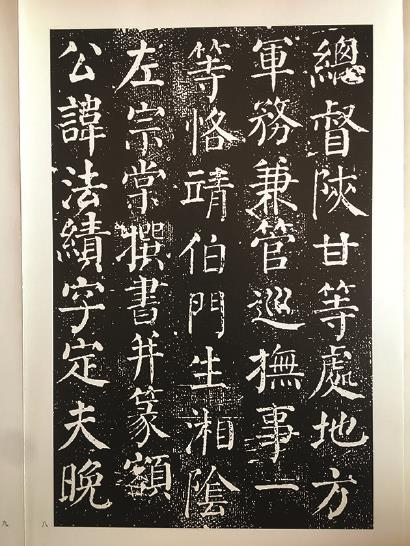 總督陝甘等處地方
軍務兼管巡撫事一
等恪靖伯門生湘陰
左宗棠撰書并篆額
公諱法績字定夫晚
八
九